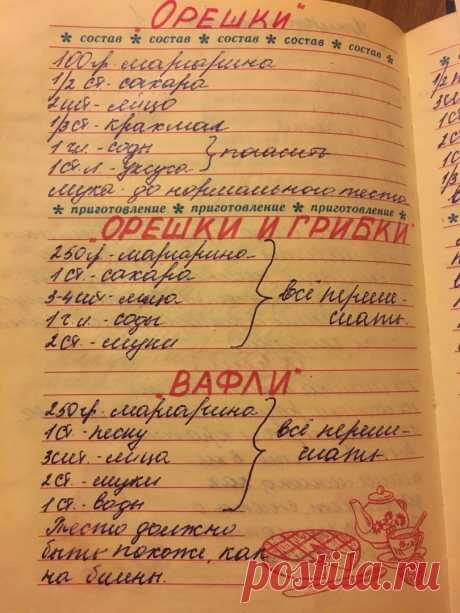 "ОРЕШКИ"
* состав * состав * состав * состав * состав *
100гр. маргарина
1/2 ст. сахара
2 шт - яйцо
1/3 ст - крахмал
1 ч л. - соды } погасить
1 ст. л - уксуса
мука до нормального теста
* приготовление * приготовление * приготовление *
"ОРЕШКИ И ГРИБКИ"
250гр. - маргарина
1 ст. - сахара
3-4 шт. - яйца } всё переме-
1 ч л. - соды шать.
2 ст. - муки
"ВАФЛИ"
250гр. - маргарина
1 ст. - песку } всё переме-
3 шт. - яйца шать.
2 ст. - муки
1 ст. - воды
Тесто должно
быть похоже, как
на блины.
postila.ru